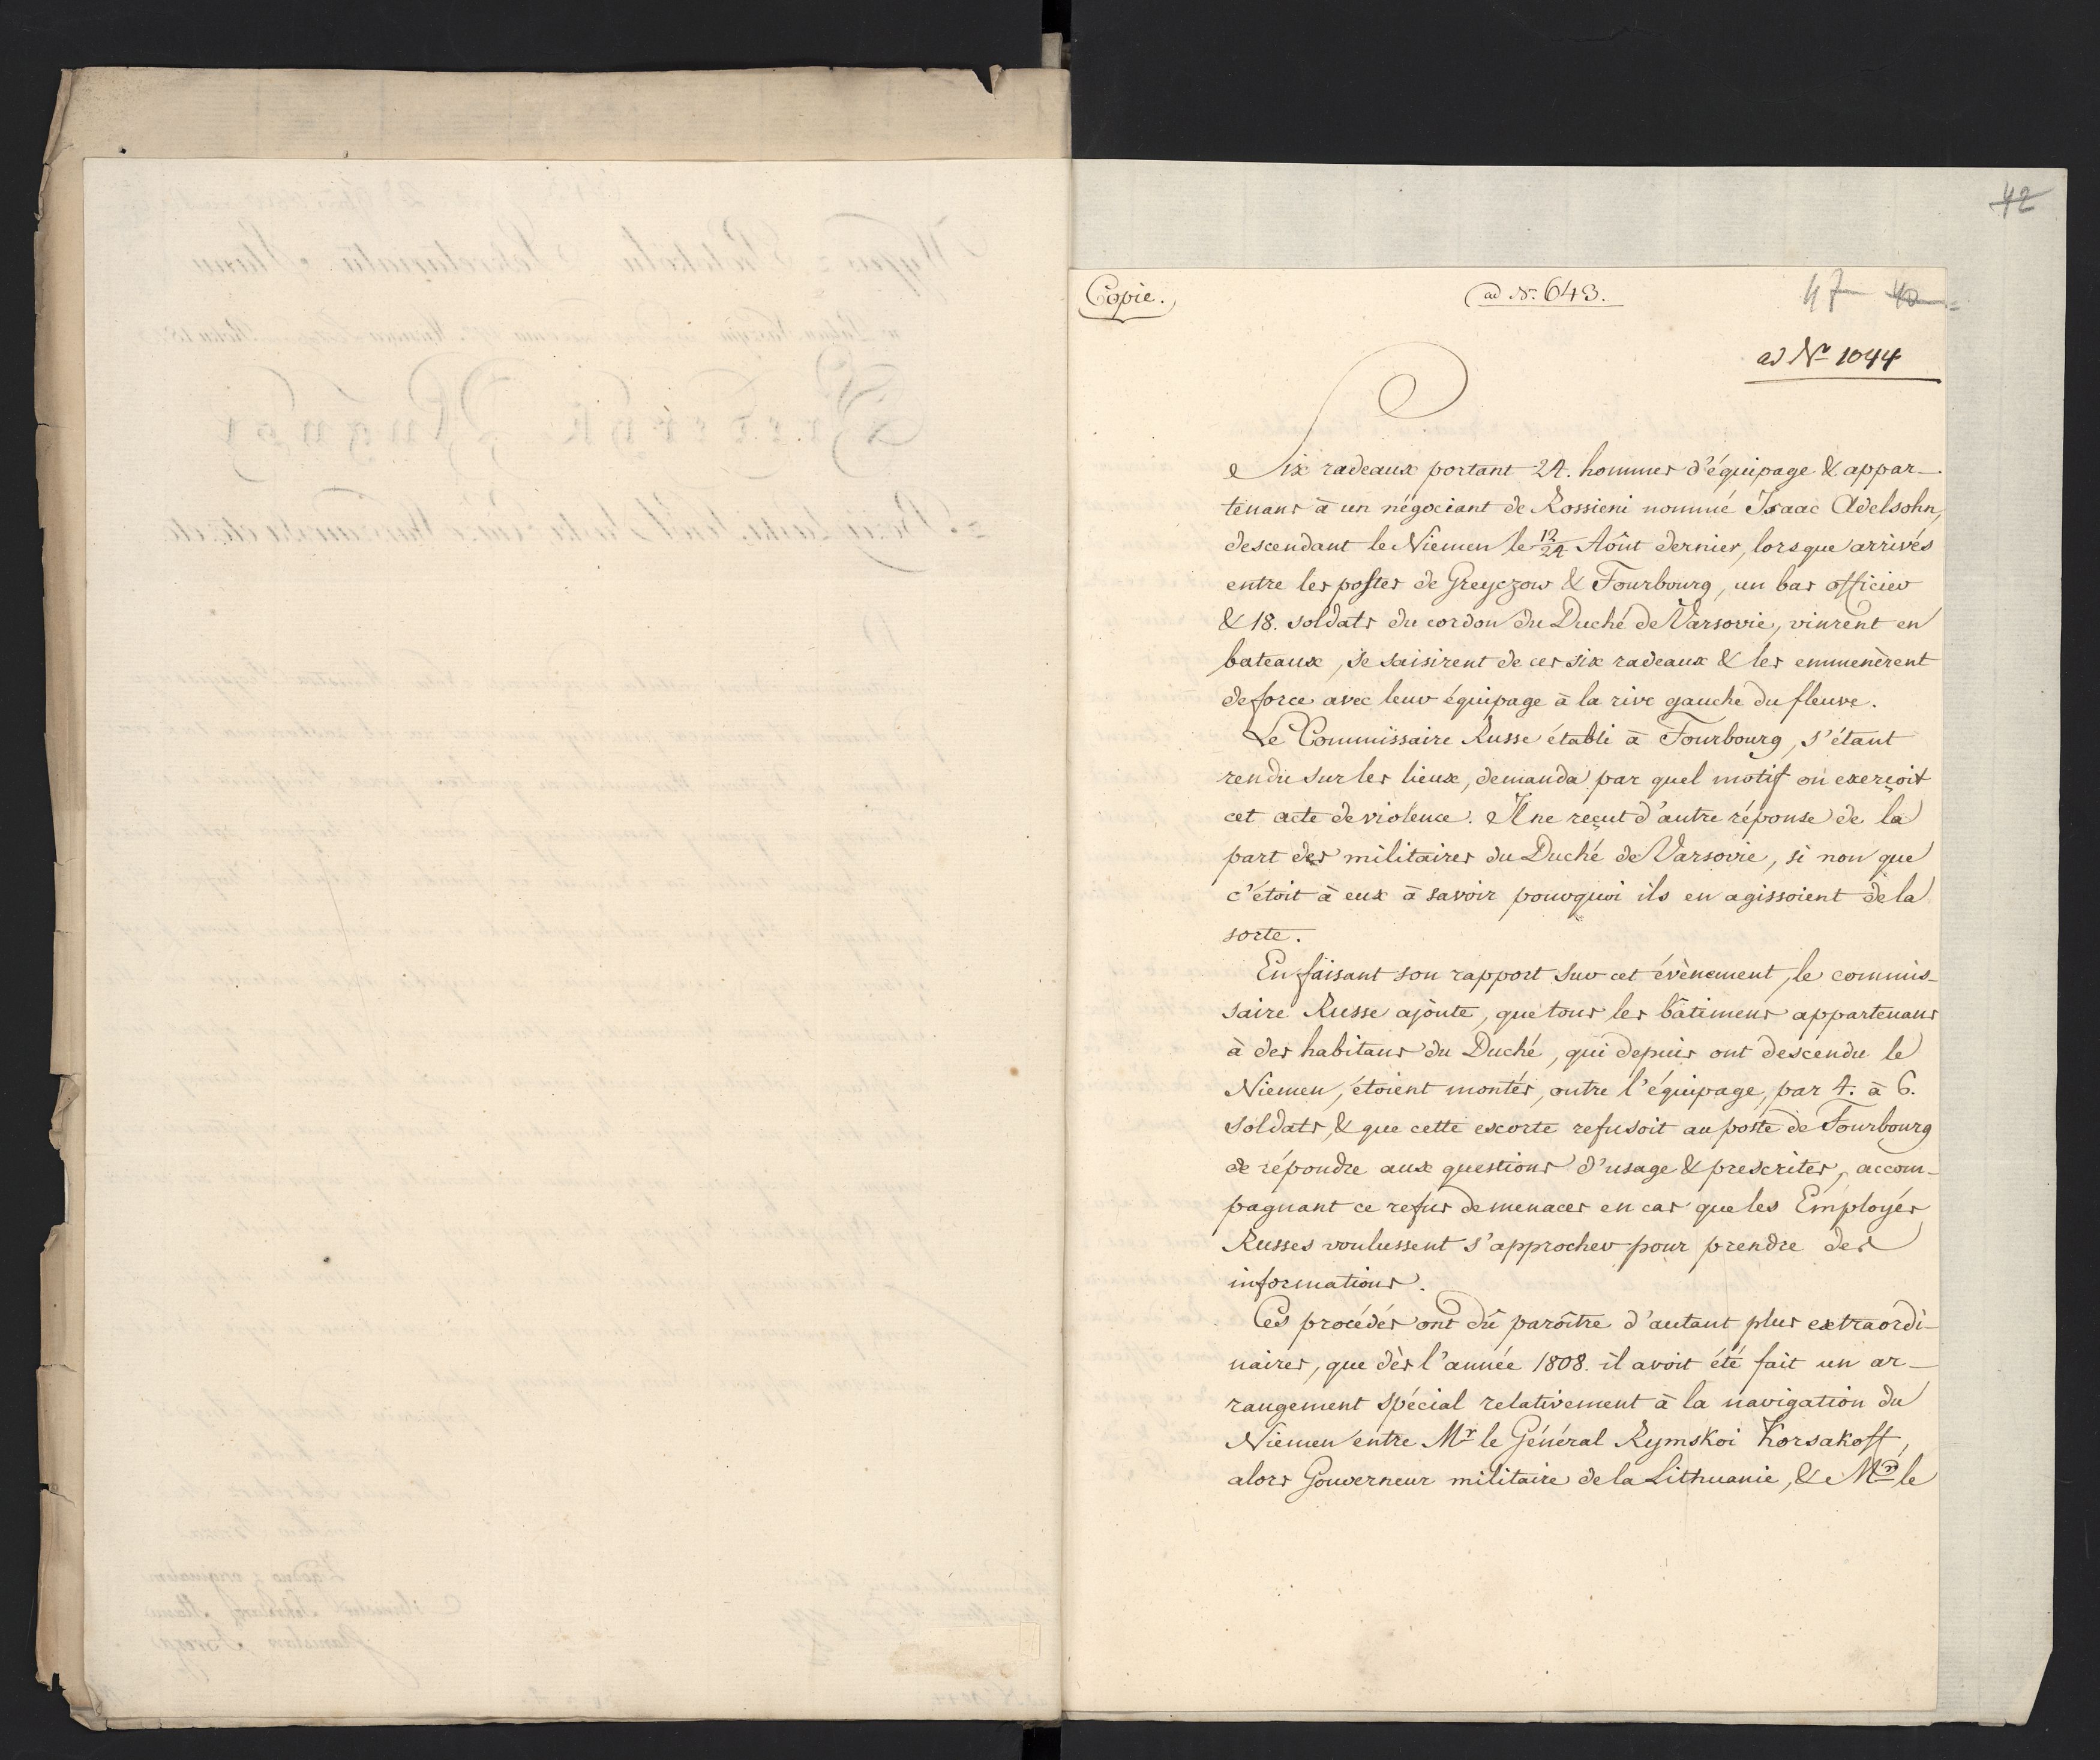 42
Copie.
ad Nr. 643.
47
ad Nr 1044
Six radeaux portant 24. hommes d'équipage & appar-
tenans à un négociant de Rossieni nommé Isaac Adelsohn,
descendant le Niemen le 12/24 Aôut dernier, lorsque arrivés
entre les postes de Greyczow & Fourbourg, un bas officier
& 18. soldats du cordon du Duché de Varsovie, vinrent en
bateaux, se saisirent de ces six radeaux & les emmenèrent
de force avec leur équipage à la rive gauche du fleuve.
Le Commissaire Russe établi à Fourbourg, s'étant
rendu sur les lieux, demanda par quel motif on exerçoit
cet acte de violence. Il ne reçut d'autre réponse de la
part des militaires du Duché de Varsovie, si non que
c'étoit à eux à savoir pourquoi ils en agissoient de la
sorte.
En faisant son rapport sur cet évènement, le commis-
saire Russe ajoute, que tous les bâtimens appartenans
à des habitans du Duché, qui depuis ont descendu le
Niemen, étoient montés, outre l'équipage, par 4. à 6.
soldats, & que cette escorte refusoit au poste de Fourbourg
de répondre aux questions d'usage & prescrites, accom-
pagnant ce refus de menaces en cas que les Employés
Russes voulussent s'approcher pour prendre des
informations.
Ces procédés ont dû paroître d'autant plus extraordi-
naires, que dès l'année 1808. il avoit été fait un ar-
rangement spécial relativement à la navigation du
Niemen entre Mr le Général Rymskoi Korsakoff,
alors Gouverneur militaire de la Lithuanie, & Mr le